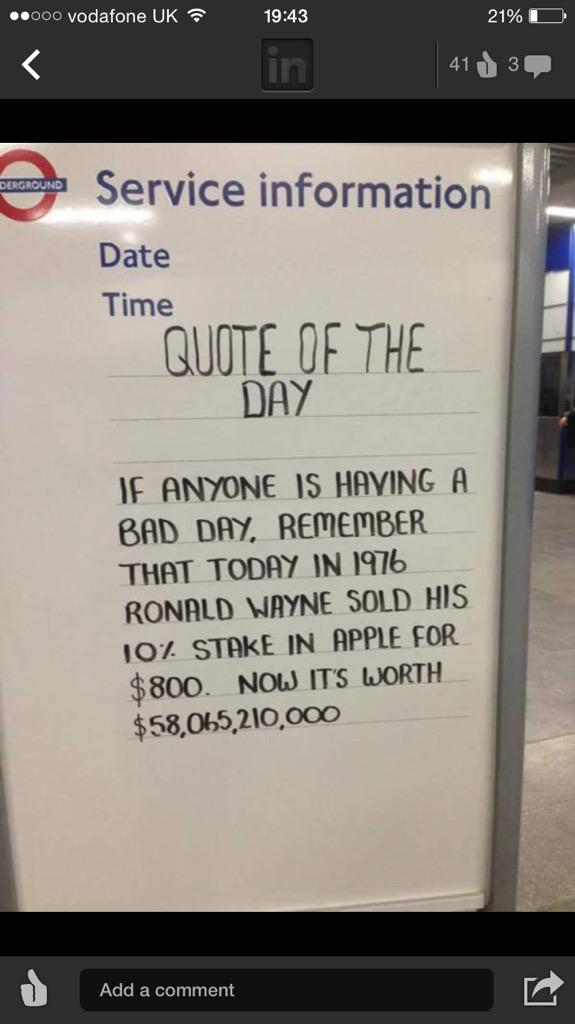 vodafone UK 19:43 21%
in 41 3
DERGROUND
Service information
Date
Time
QUOTE OF THE
DAY
IF ANYONE IS HAVING A
BAD DAY, REMEMBER
THAT TODAY IN 1976
RONALD WAYNE SOLD HIS
10% STAKE IN APPLE FOR
$800. NOW IT'S WORTH
$58,065,210,000
Add a comment